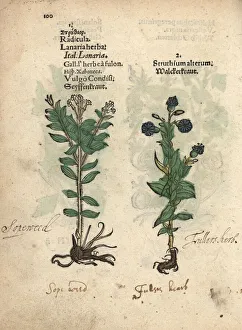 100
1.
Radicula.
Lanaria herba:
Ital. Lanaria.
Gall. l'herbe à fulon.
Vulgo Condisi:
Seyffenkraut.
2.
Struthium alterum.
Walckerkraut.
Sopeweed
Fullers herb.
Sope weed
Fullers hearb